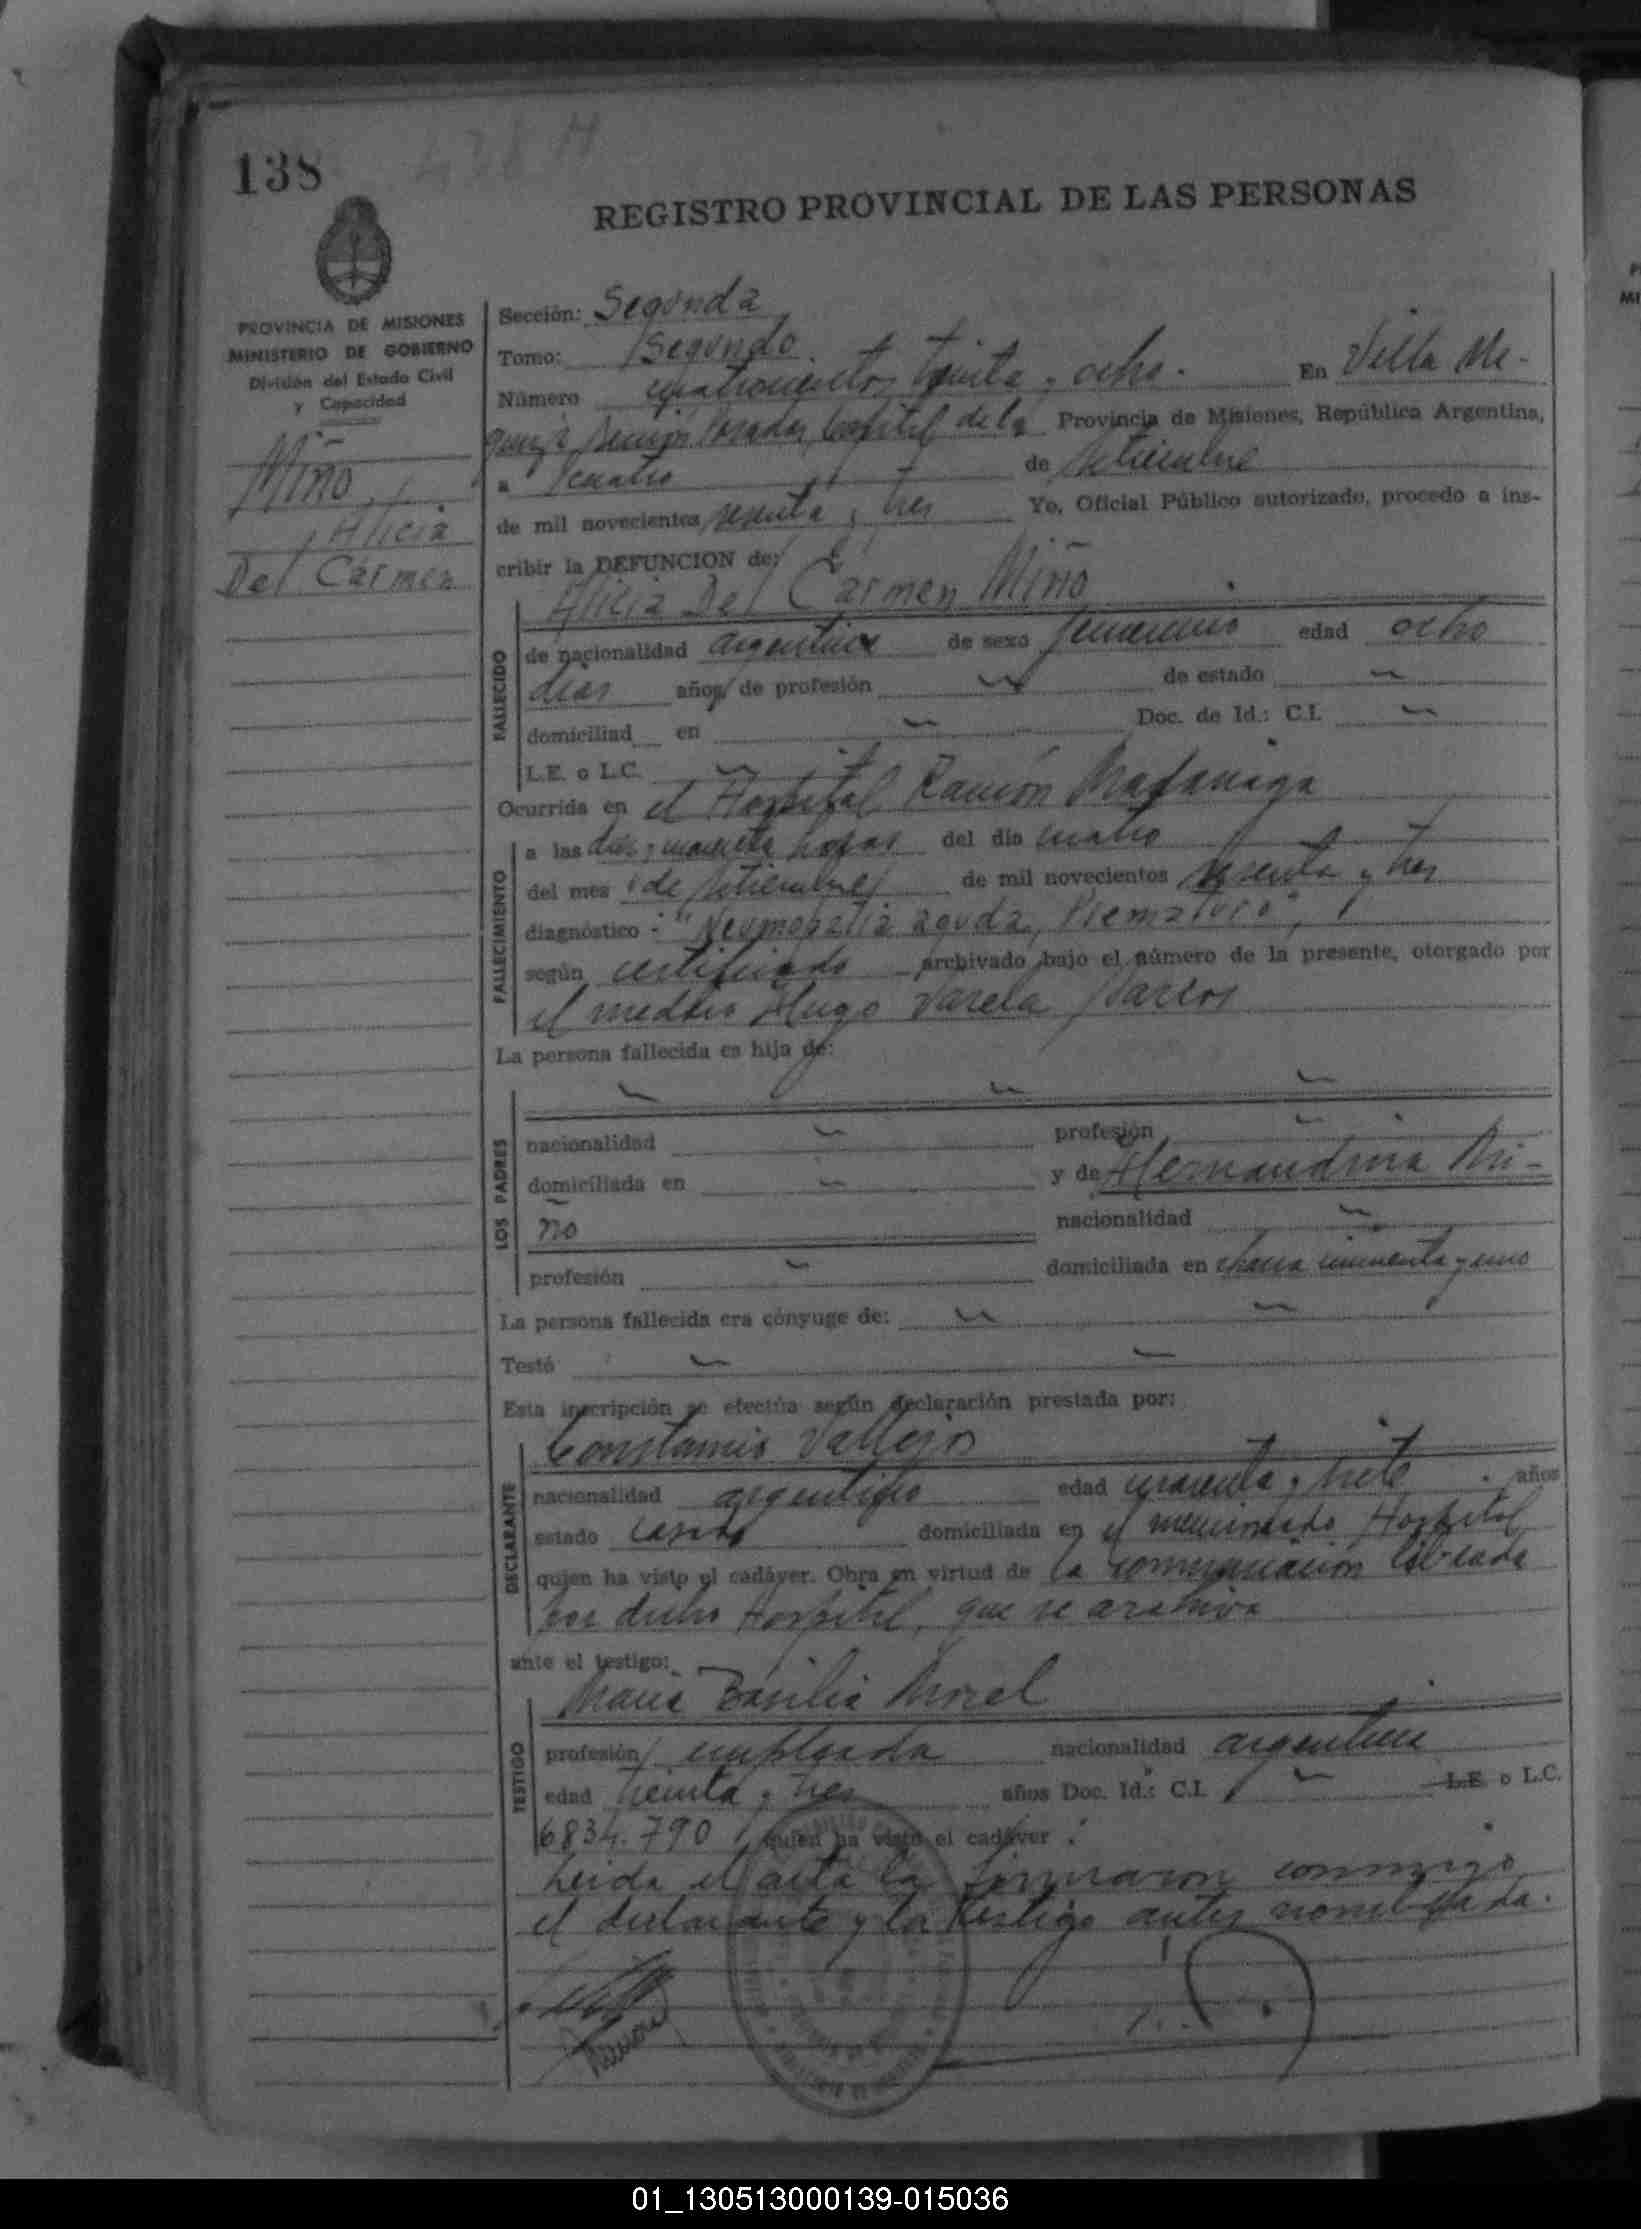 138
438 H
REGISTRO PROVINCIAL DE LAS PERSONAS
PROVINCIA DE MISIONES
MINISTERIO DE GOBIERNO
División del Estado Civil
y Capacidad
Miño,
Alicia
Del Carmen
Sección: Segunda
Tomo: Segundo
Número cuatrocientos treinta y ocho. En Villa
Posadas, Capital de la Provincia de Misiones, República Argentina,
a cuatro de setiembre
de mil novecientos sesenta y tres Yo, Oficial Público autorizado, procedo a ins-
cribir la DEFUNCION de:
Alicia Del Carmen Miño
FALLECIDO
de nacionalidad argentina de sexo femenino edad ocho
días años de profesión de estado
domiciliad en Doc. de Id.: C.I.
L.E. o L.C.
Ocurrida en el Hospital Ramón Madariaga
FALLECIMIENTO
a las horas del día cuatro
del mes de setiembre de mil novecientos sesenta y tres
diagnóstico: "Neumopatía aguda, Prematuro",
según certificado archivado bajo el número de la presente, otorgado por
el médico Hugo Varela
La persona fallecida es hija de:
LOS PADRES
nacionalidad profesión
domiciliada en y de Hernandina Mi-
ño nacionalidad
profesión domiciliada en chacra cincuenta y uno
La persona fallecida era cónyuge de:
Testó
Esta inscripción se efectúa según declaración prestada por:
DECLARANTE
Vallejos
nacionalidad argentino edad cuarenta y siete años
estado casado domiciliada en el mencionado Hospital
quien ha visto el cadáver. Obra en virtud de la comunicación librada
por dicho Hospital, que se archiva
ante el testigo:
TESTIGO
María Basilia Morel
profesión empleada nacionalidad argentina
edad treinta y tres años Doc. Id.: C.I. L.E. o L.C.
6834.790 quien ha visto el cadáver.
Leida el acta la firmaron conmigo
el declarante y la testigo antes nombrada.
01_130513000139-015036